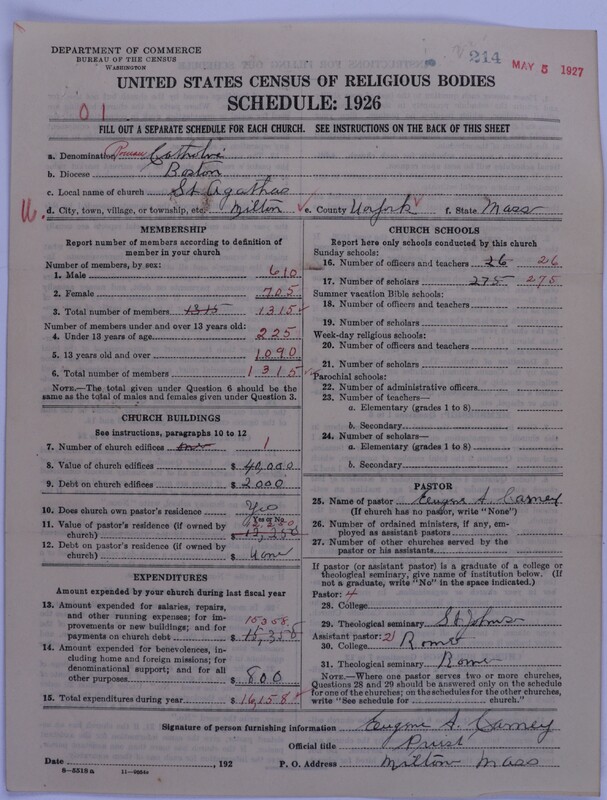 DEPARTMENT OF COMMERCE
BUREAU OF THE CENSUS
WASHINGTON
214
MAY 5 1927
UNITED STATES CENSUS OF RELIGIOUS BODIES
SCHEDULE: 1926
01
FILL OUT A SEPARATE SCHEDULE FOR EACH CHURCH. SEE INSTRUCTIONS ON THE BACK OF THIS SHEET
a. Denomination Roman Catholic
b. Diocese Boston
c. Local name of church St Agathas
d. City, town, village, or township, etc. Milton e. County Norfolk f. State Mass
MEMBERSHIP
Report number of members according to definition of member in your church
Number of members, by sex:
1. Male 610
2. Female 705
3. Total number of members 1315 1315
Number of members under and over 13 years old:
4. Under 13 years of age 225
5. 13 years old and over 1090
6. Total number of members 1315
NOTE.—The total given under Question 6 should be
same as the total of males and females given under Question 3.
CHURCH BUILDINGS
See instructions, paragraphs 10 to 12
7. Number of church edifices one 1
8. Value of church edifices $ 40,000
9. Debt on church edifices $ 2000
10. Does church own pastor's residence Yes
Yes or No.
11. Value of pastor's residence (if owned by
church) $
12. Debt on pastor's residence (if owned by
church) $ none
EXPENDITURES
Amount expended by your church during last fiscal year
13. Amount expended for salaries, repairs,
and other running expenses; for im-
provements or new buildings; and for
payments on church debt $ 15,358 15,358
14. Amount expended for benevolences,
including home and foreign missions; for
denominational support; and for all
other purposes $ 800
15. Total expenditures during year $ 16,158
CHURCH SCHOOLS
Report here only schools conducted by this church
Sunday schools:
16. Number of officers and teachers 26 26
17. Number of scholars 275 275
Summer vacation Bible schools:
18. Number of officers and teachers
19. Number of scholars
Week-day religious schools:
20. Number of officers and teachers
21. Number of scholars
Parochial schools:
22. Number of administrative officers
23. Number of teachers—
a. Elementary (grades 1 to 8)
b. Secondary
24. Number of scholars—
a. Elementary (grades 1 to 8)
b. Secondary
PASTOR
25. Name of pastor Eugene A. Carney
(If church has no pastor, write "None")
26. Number of ordained ministers, if any, em-
ployed as assistant pastors
27. Number of other churches served by the
pastor or his assistants
If pastor (or assistant pastor) is a graduate of a college or
theological seminary, give name of institution below. (If
not a graduate, write "No" in the space indicated.)
Pastor: 4
28. College
29. Theological seminary St Johns
Assistant pastor: 21
30. College Rome
31. Theological seminary Rome
NOTE.—Where one pastor serves two or more churches,
Questions 28 and 29 should be answered only on the schedule
for one of the churches; on the schedules for the other churches,
write "See schedule for church."
Signature of person furnishing information Eugene A. Carney
Official title Priest
Date , 192 P. O. Address Milton Mass
8—5510a